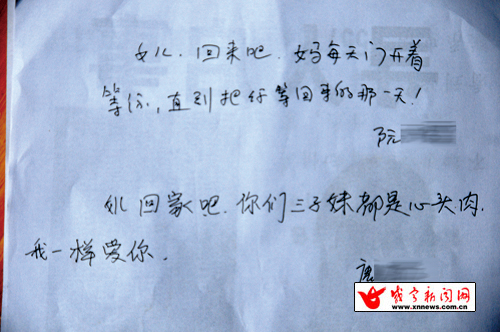 女儿.回来吧.妈每天门开着
等你,直到把你等回来的那一天!
阮
女儿回家吧.你们三子妹都是心头肉.
我一样爱你.
唐
咸宁新闻网
www.xnnews.com